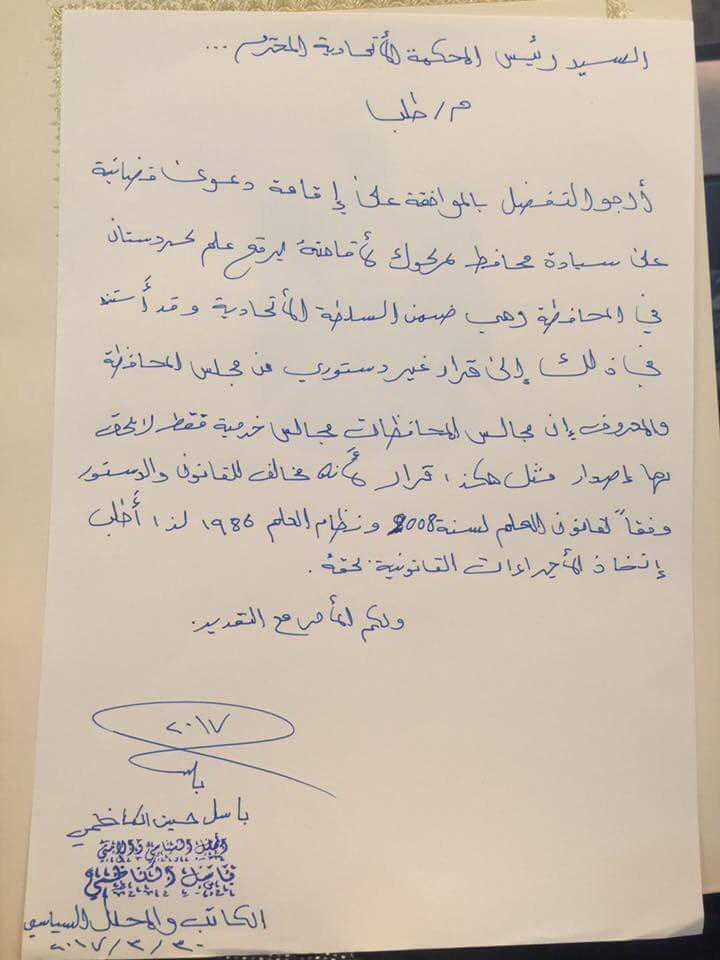 السيد رئيس المحكمة الأتحادية المحترم ...
م/ طلب
أرجو التفضل بالموافقة على إقامة دعوى قضائية
على سيادة محافظ كركوك لأقامته برفع علم كردستان
في المحافظة وهي ضمن السلطة الأتحادية وقد أستند
في ذلك إلى قرار غير دستوري من مجلس المحافظة
والمعروف إن مجالس المحافظات مجالس خدمية فقط لا يحق
بها إصدار مثل هكذا قرار لأنه مخالف للقانون والدستور
وفقاً لقانون العلم لسنة 2008 ونظام العلم ١٩٨٦ لذا أطلب
إتخاذ الأجراءات القانونية بحقه.
ولكم الأمر مع التقدير.
٢٠١٧
باسل
باسل حسين الكاظمي
الكاتب والمحلل السياسي
٢٠١٧/٣/٣٠